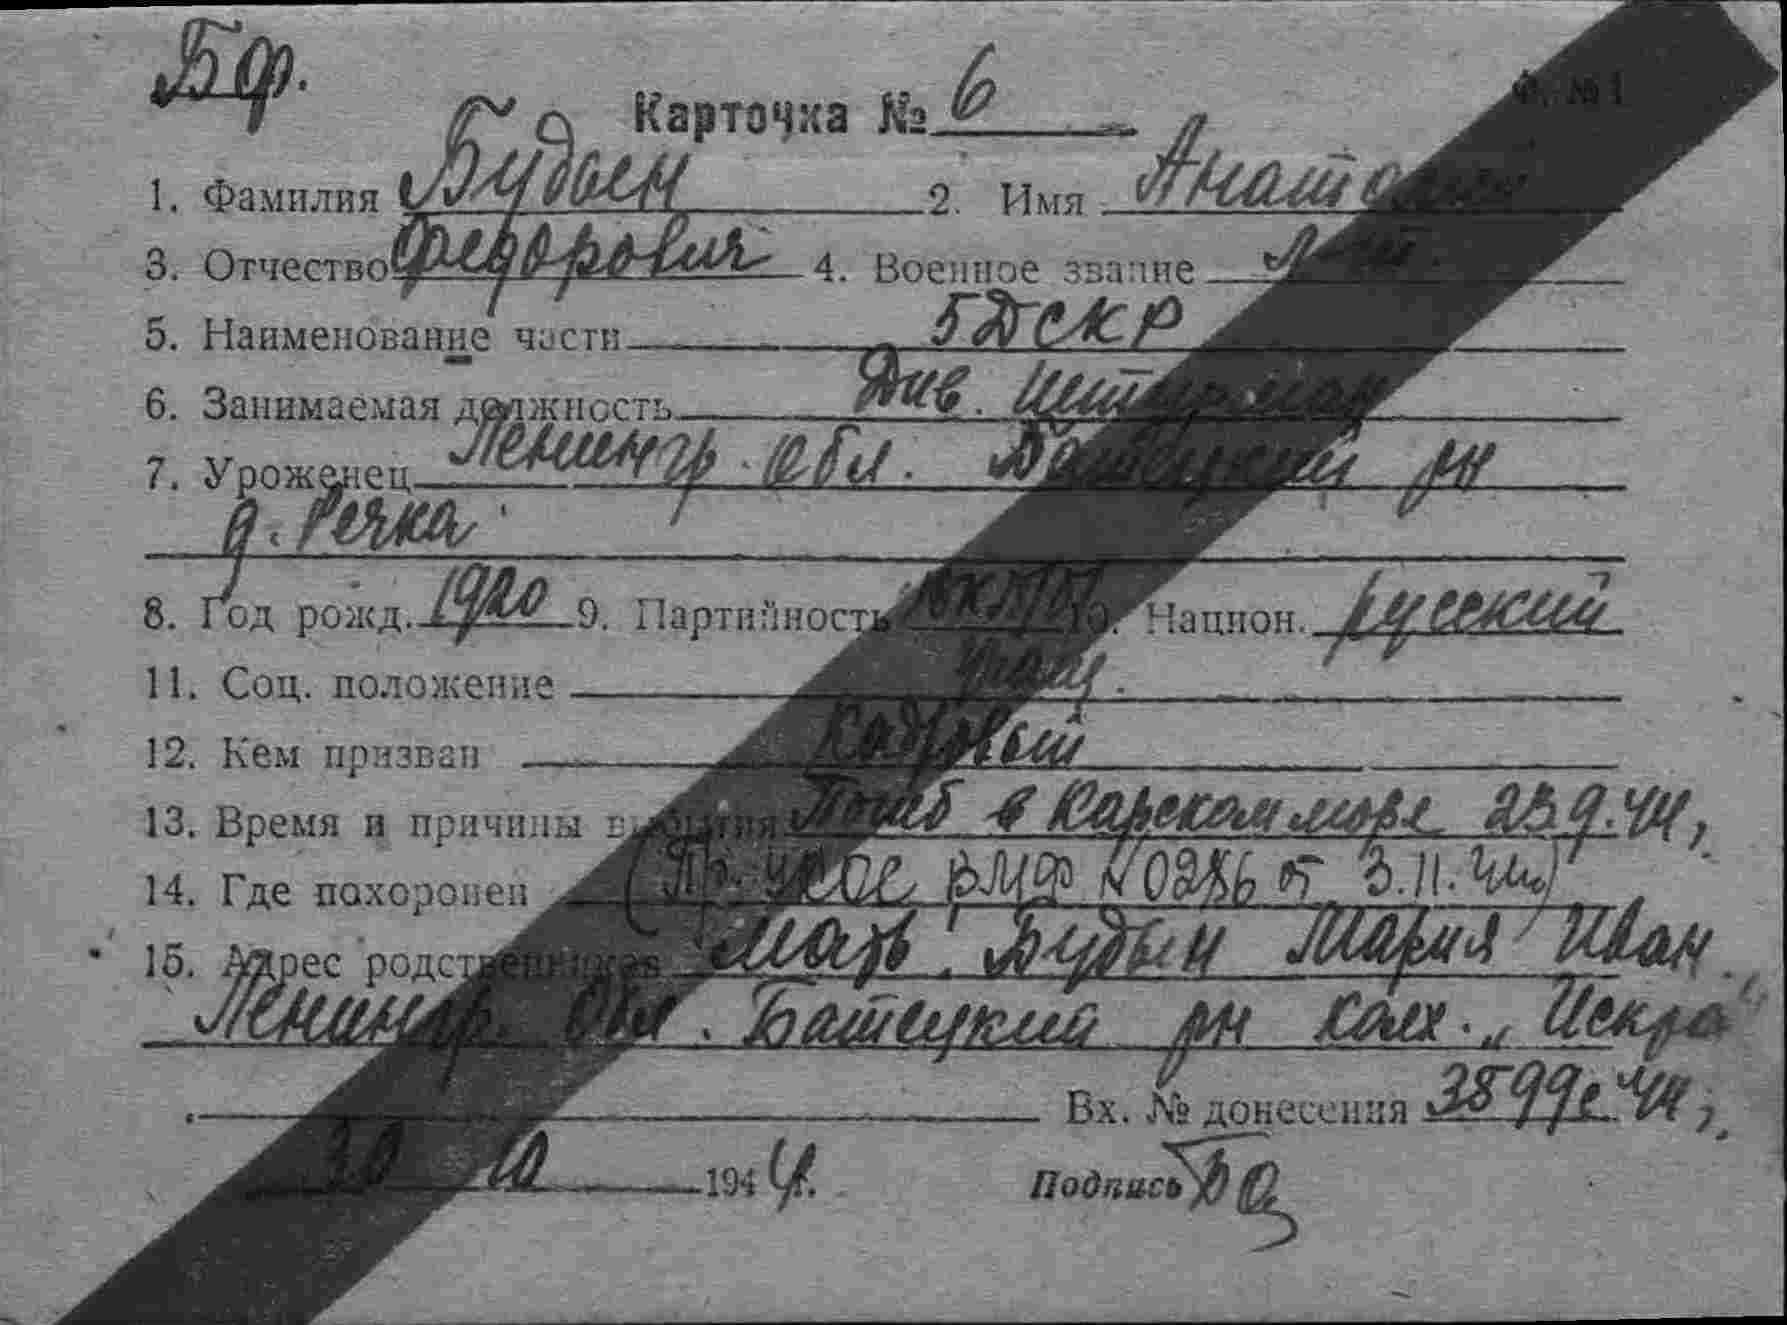 БФ.
Ф. № 1
Карточка № 6
1. Фамилия Будын 2. Имя Анатолий
3. Отчество Федорович 4. Военное звание л-нт.
5. Наименование части 5 ДСКР
6. Занимаемая должность Див. Штурман
7. Уроженец Ленингр. Обл. Батецкий рн
д. Речка
8. Год рожд. 1920 9. Партийность ВКП(б) 10. Национ. русский
11. Соц. положение учащ.
12. Кем призван Кадровый
13. Время и причины выбытия Погиб в Карском море 23.9.44,
14. Где похоронен (Пр. УКОС ВМФ № 0286 от 3.11.44)
15. Адрес родственников Мать: Будын Мария Иван.
Ленингр. Обл. Батецкий рн колх. „Искра"
Вх. № донесения 3899с 44,
30 10 1944.
Подпись